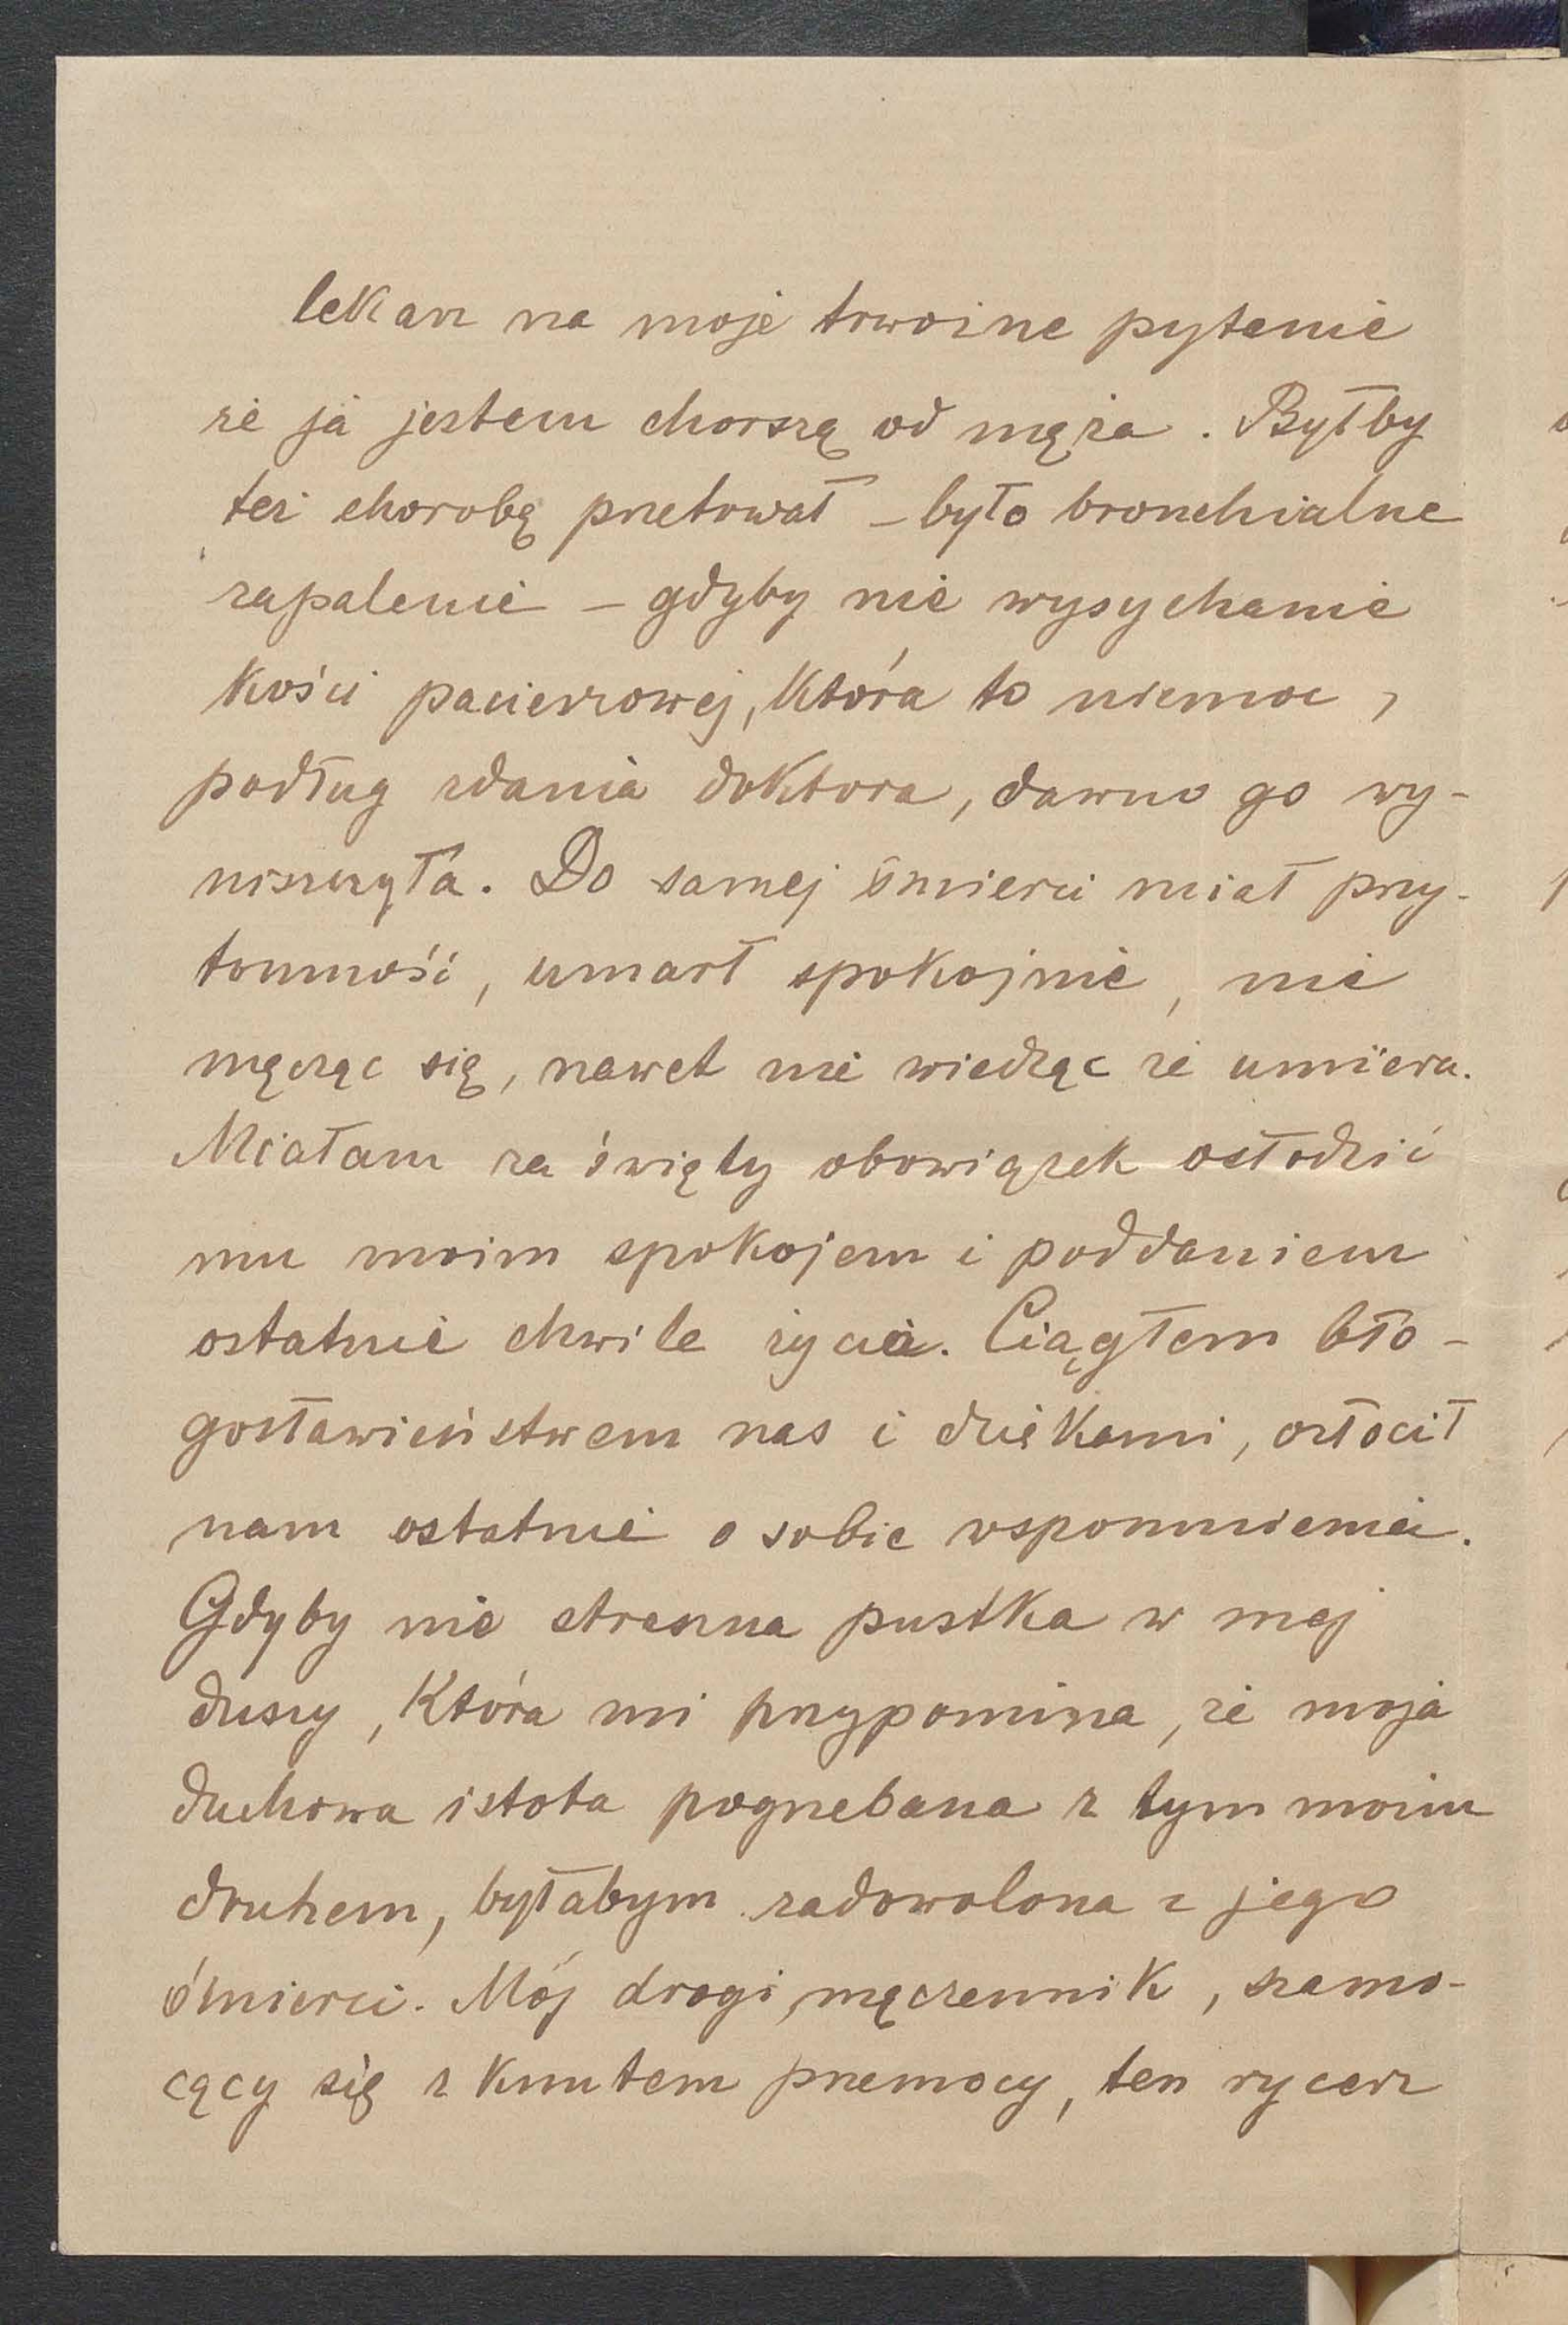 lekarz na moje trwożne pytanie
że ja jestem chorszą od męża. Byłby
też chorobę przetrwał – było bronchialne
zapalenie – gdyby nie wysychanie
kości pacierzowej, która to niemoc,
podług zdania doktora, dawno go wy-
niszczyła. Do samej śmierci miał przy-
tomność, umarł spokojnie, nie
męcząc się, nawet nie wiedząc że umiera.
Miałam za święty obowiązek osłodzić
mu moim spokojem i poddaniem
ostatnie chwile życia. Ciągłem bło-
gosławieństwem nas i dziękami, ozłocił
nam ostatnie o sobie wspomnienia.
Gdyby nie straszna pustka w mej
duszy, która mi przypomina, że moja
duchowa istota pogrzebana z tym moim
druhem, byłabym zadowolona z jego
śmierci. Mój drogi męczennik, szamo-
cący się z knutem przemocy, ten rycerz